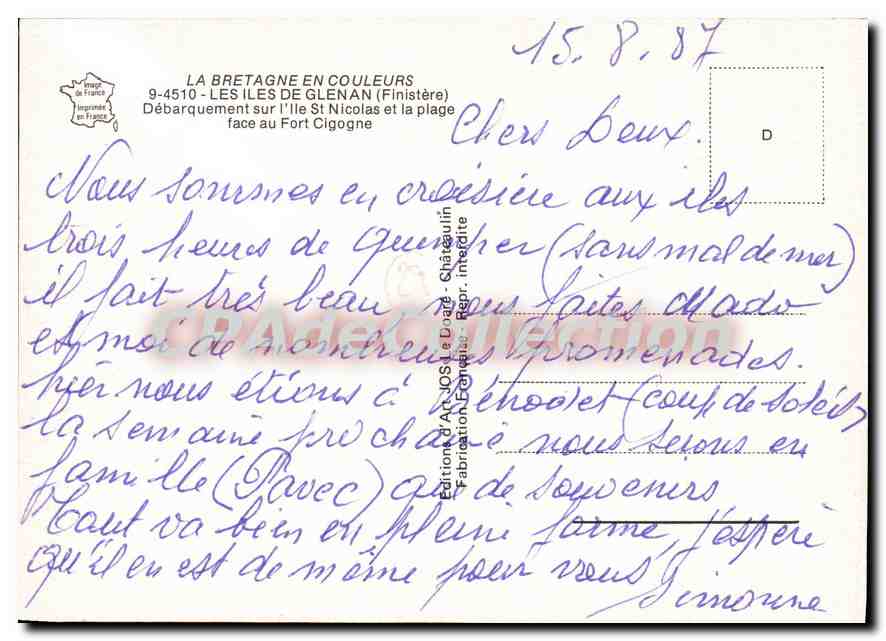 15.8.87
Image
de France
Imprimée
en France
LA BRETAGNE EN COULEURS
9-4510 - LES ILES DE GLENAN (Finistère)
Débarquement sur l'Ile St Nicolas et la plage
face au Fort Cigogne
D
Chers Deux.
Nous sommes en croisière aux iles
trois heures de Quimper (sans mal de mer)
il fait très beau nous faites Mado
et moi de nombreuses promenades.
hier nous étions à Bénodet (coup de soleil)
la semaine prochaine nous serons en
famille (Pavec) que de souvenirs
Tout va bien en pleine forme, j'espère
qu'il en est de même pour vous
Simonne
Editions d'Art JOS Le Doaré - Châteaulin
Fabrication Française - Repr. interdite
CPAdeCollection